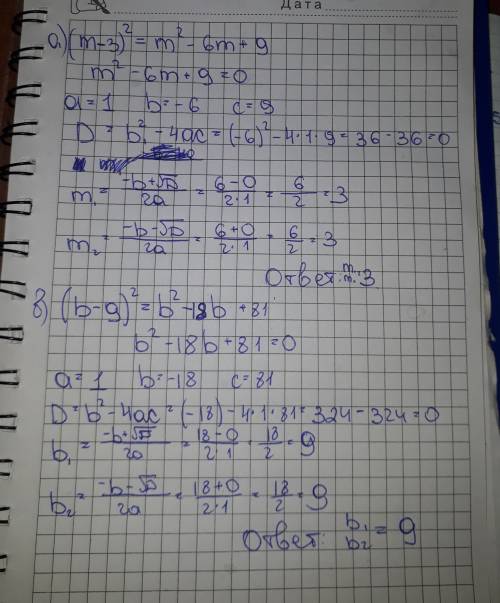 Дата
а) (m-3)² = m² - 6m + 9
m² - 6m + 9 = 0
a = 1 b = -6 c = 9
D = b² - 4ac = (-6)² - 4·1·9 = 36 - 36 = 0
m₁ = -b+√D/2a = 6-0/2·1 = 6/2 = 3
m₂ = -b-√D/2a = 6+0/2·1 = 6/2 = 3
Ответ: m₁ m₂ 3
в) (b-9)² = b² - 18b + 81
b² - 18b + 81 = 0
a = 1 b = -18 c = 81
D = b² - 4ac = (-18) - 4·1·81 = 324 - 324 = 0
b₁ = -b+√D/2a = 18-0/2·1 = 18/2 = 9
b₂ = -b-√D/2a = 18+0/2·1 = 18/2 = 9
Ответ: b₁ b₂ = 9